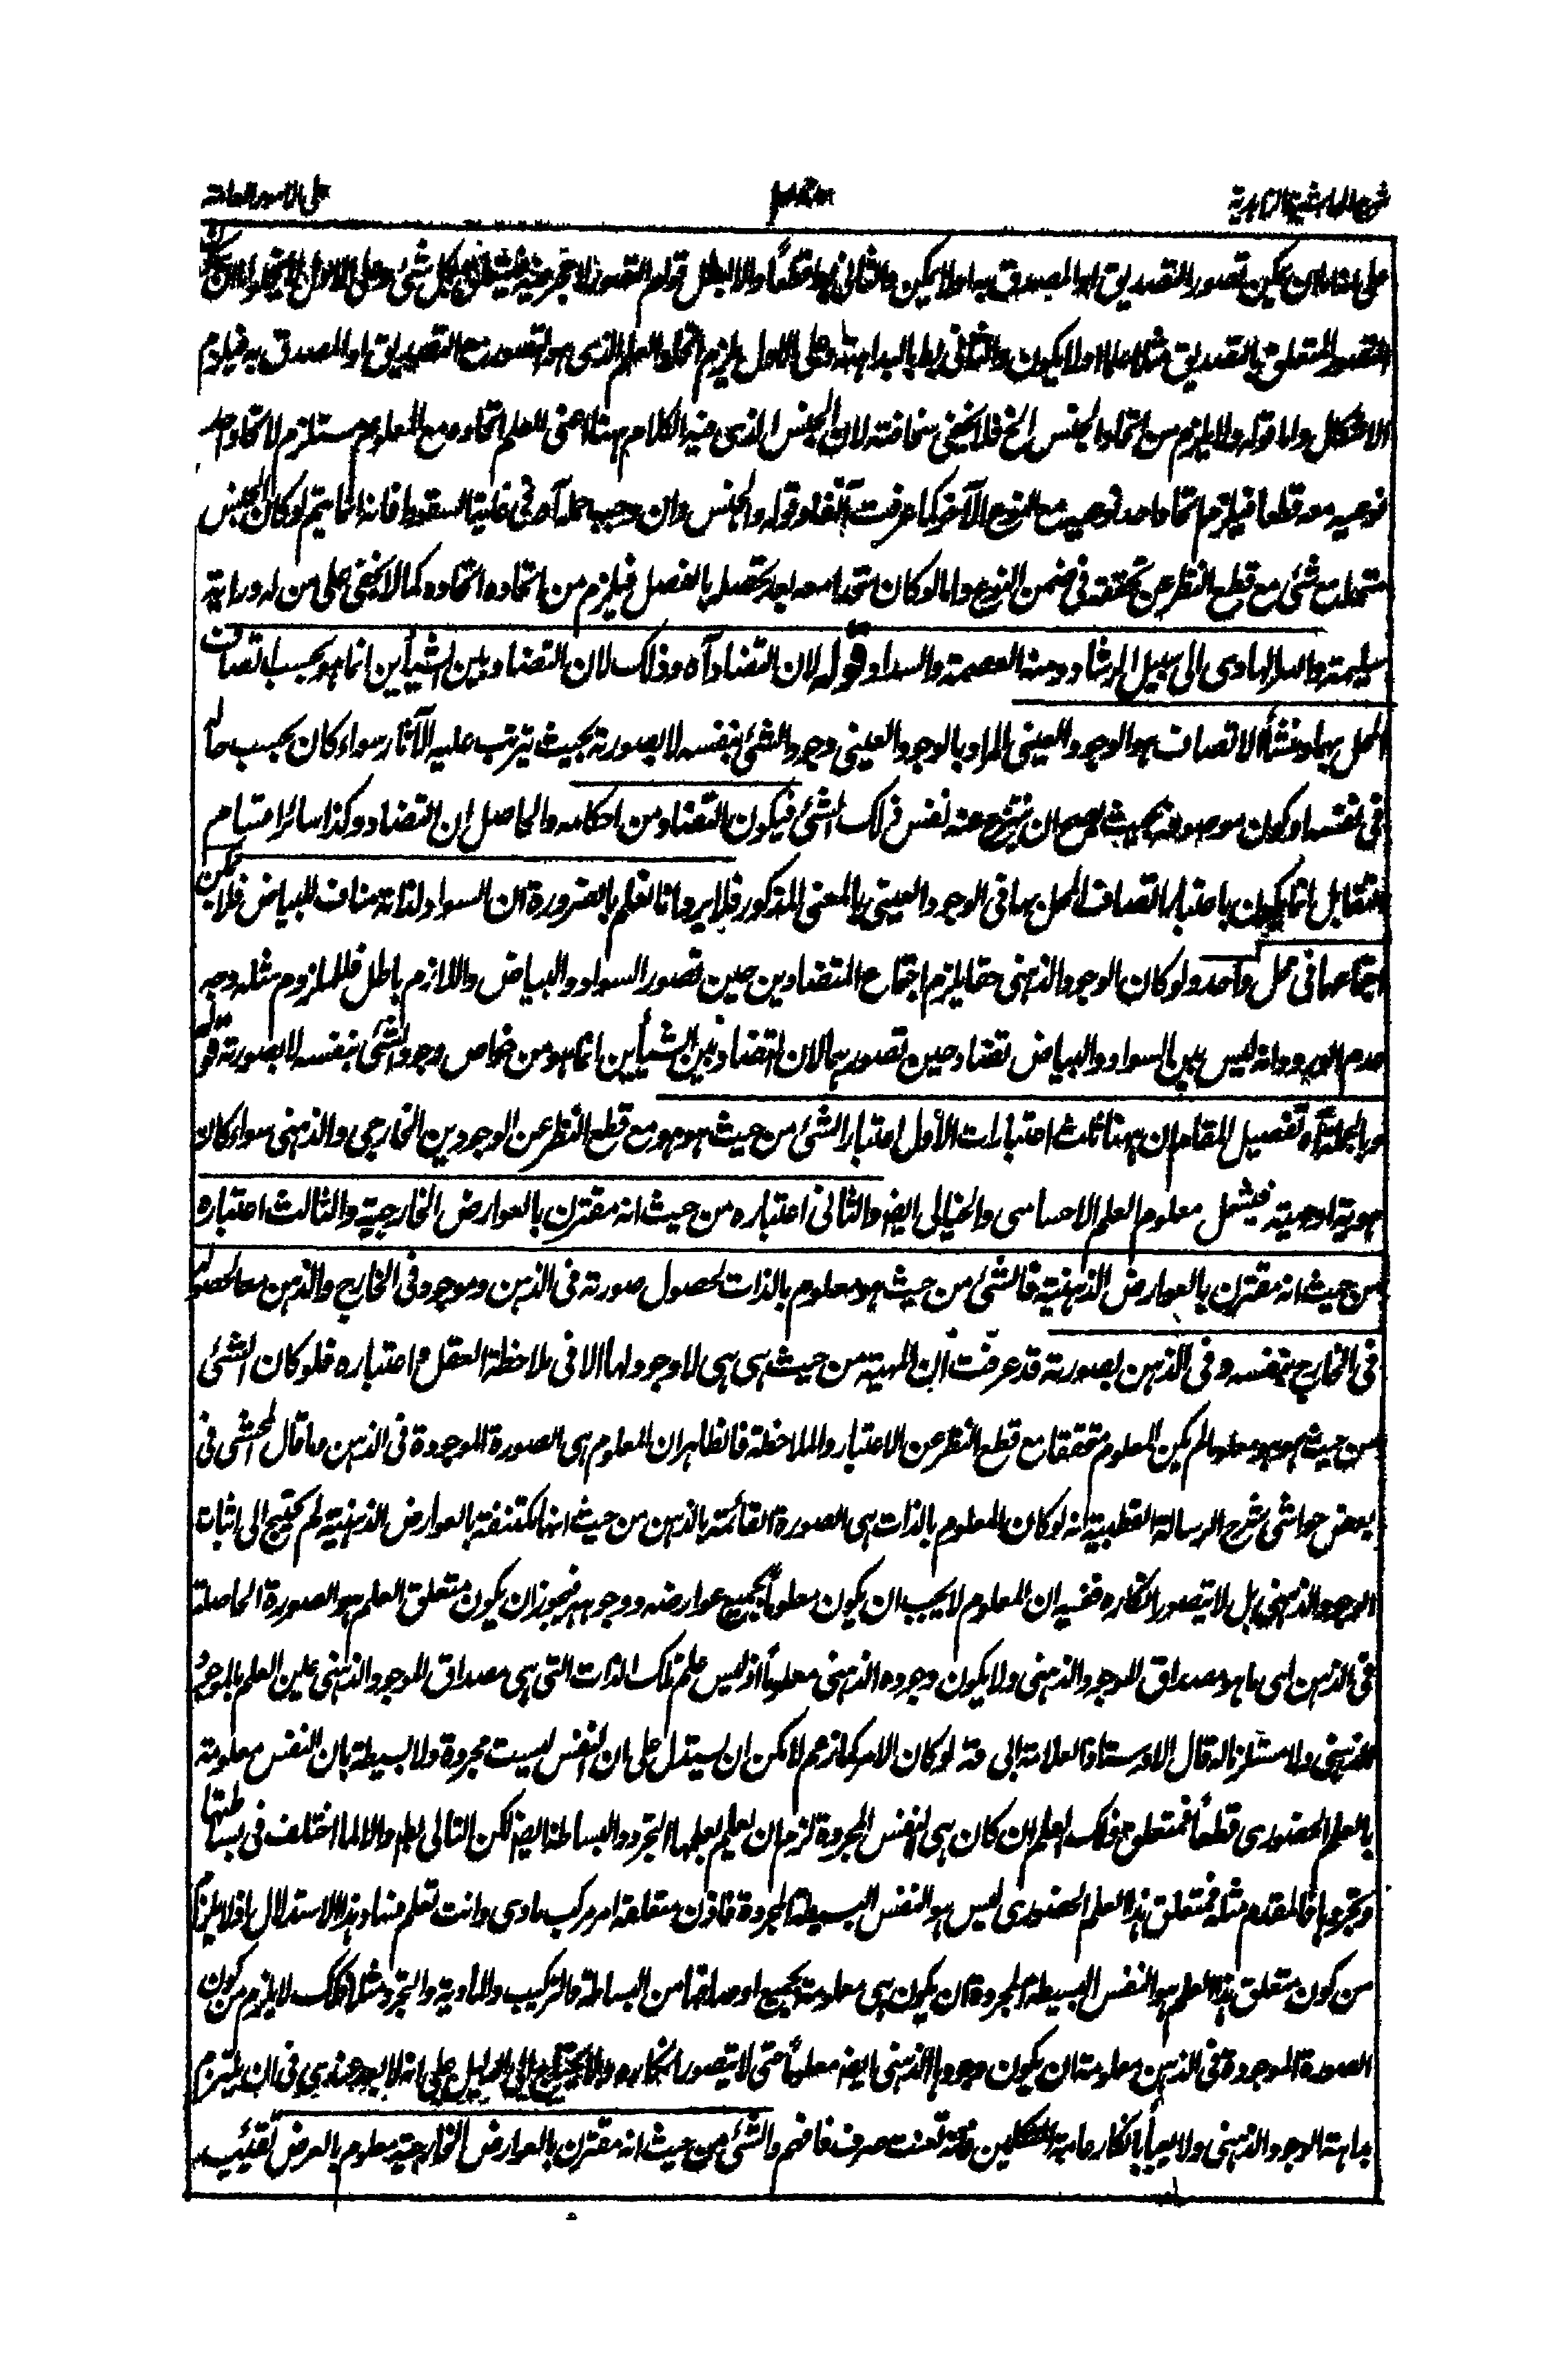 شرح الحاشية الزاهدية
على الامور العامة
على انه اما ان يمكن تصور التصديق او المصدق به او لا يمكن والثاني باطل قطعاً والا لبطل قولهم التصور لا حجر فيه فيتعلق بكل شئ وعلى الاول لا يخلو اما ان يكون
التصور المتعلق بالتصديق مثلا علما او لا يكون والثاني باطل بالبداهة وعلى الاول يلزم اتحاد العلم الذى هو التصور مع التصديق او المصدق به فيلزم
الاشكال واما قوله ولا يلزم من اتحاد الجنس الخ فلا يخفى سخافته لان الجنس الذى فيه الكلام ههنا اعنى العلم اتحاده مع المعلوم مستلزم لاتحاد احد
نوعيه معه قطعا فيلزم اتحاد احد نوعيه مع النوع الآخر كما عرفت آنفا وقوله والجنس وان وجب حمله آه في غاية السقوط فانه انما يتم لو كان الجنس
متحدا مع شئ مع قطع النظر عن تحققه في ضمن النوع واما لو كان متحدا معه بعد تحصله بالفصل فيلزم من اتحاده اتحاده كما لا يخفى على من له دراية
سليمة والله الهادى الى سبيل الرشاد ومنه العصمة والسداد قوله لان التضاد آه وذلك لان التضاد بين الشيأين انما هو بحسب اتصاف
المحل بهما ومنشأ الاتصاف هو الوجود العينى المراد بالوجود العينى وجود الشئ بنفسه لا بصورته بحيث يترتب عليه الآثار سواء كان بحسب حاله
في نفسه او كون موصوفه بحيث يصح ان ينتزع عنه نفس ذلك الشئ فيكون التضاد من احكامه والحاصل ان التضاد وكذا سائر اقسام
التقابل انما يكون باعتبار اتصاف المحل بها في الوجود العينى بالمعنى المذكور فلا يرد انا نعلم بالضرورة ان السواد لذاته مناف للبياض فلا يمكن
اجتماعهما في محل واحد ولو كان الوجود الذهنى حقا يلزم اجتماع المتضادين حين تصور السواد والبياض واللازم باطل فالملزوم مثله وجه
عدم الورود انه ليس بين السواد والبياض تضاد حين تصورهما لان التضاد بين الشيأين انما هو من خواص وجود الشئ بنفسه لا بصورته قوله
وبالجملة آه تفصيل المقام ان ههنا ثلث اعتبارات الاول اعتبار الشئ من حيث هو هو مع قطع النظر عن الوجودين الخارجى والذهنى سواء كان
هوية او مهية فيشمل معلوم العلم الاحساسى والخيالى ايضا والثانى اعتباره من حيث انه مقترن بالعوارض الخارجية والثالث اعتباره
من حيث انه مقترن بالعوارض الذهنية فالشئ من حيث هو معلوم بالذات لحصول صورته في الذهن وموجود في الخارج والذهن معا لحصوله
في الخارج بنفسه وفي الذهن بصورته قد عرفت ان المهية من حيث هى هى لا وجود لها الا في ملاحظة العقل واعتباره فلو كان الشئ
من حيث هو هو معلوما لم يكن المعلوم متحققا مع قطع النظر عن الاعتبار والملاحظة فالظاهر ان المعلوم هى الصورة الموجودة في الذهن وما قال المحشى في
بعض حواشى شرح الرسالة القطبية انه لو كان المعلوم بالذات هى الصورة القائمة بالذهن من حيث انها مكتنفة بالعوارض الذهنية لم يحتج الى اثبات
الوجود الذهنى بل لا يتصور انكاره ففيه ان المعلوم لا يجب ان يكون معلوماً بجميع عوارضه ووجوهه فيجوز ان يكون متعلق العلم هو الصورة الحاصلة
في الذهن اى ما هو مصداق للوجود الذهنى ولا يكون وجوده الذهنى معلوماً اذ ليس علم تلك الذات التى هى مصداق للوجود الذهنى عين العلم بالوجود
الذهنى ولا مستلزما له قال الاوستاذ العلامة ابى قده لو كان الامر كما زعم لامكن ان يستدل على ان النفس ليست مجردة ولا بسيطة بان النفس معلومة
بالعلم الحضورى قطعاً فمتعلق ذلك العلم ان كان هى النفس المجردة لزم ان يعلم بعلمها التجرد والبساطة ايضا لكن التالى باطل والا لما اختلف في بساطتها
وتجردها فالمقدم مثله فمتعلق هذا العلم الحضورى ليس هو النفس البسيطة المجردة فاذن متعلقه امر مركب مادى وانت تعلم فساد هذا الاستدلال اذ لا يلزم
من كون متعلق هذا العلم هو النفس البسيطة المجردة ان يكون هى معلومة بجميع اوصافها من البساطة والتركيب والمادية والتجرد مثلا فكذلك لا يلزم من كون
الصورة الموجودة في الذهن معلومة ان يكون وجودها الذهنى ايضا معلوماً حتى لا يتصور انكاره ولا يحتاج الى الدليل على انه لا بعد عندى في ان يلتزم
بداهة الوجود الذهنى ولا يعبأ بانكار عامة المتكلمين فانه تعنت صرف فافهم والشئ من حيث انه مقترن بالعوارض الخارجية معلوم بالعرض